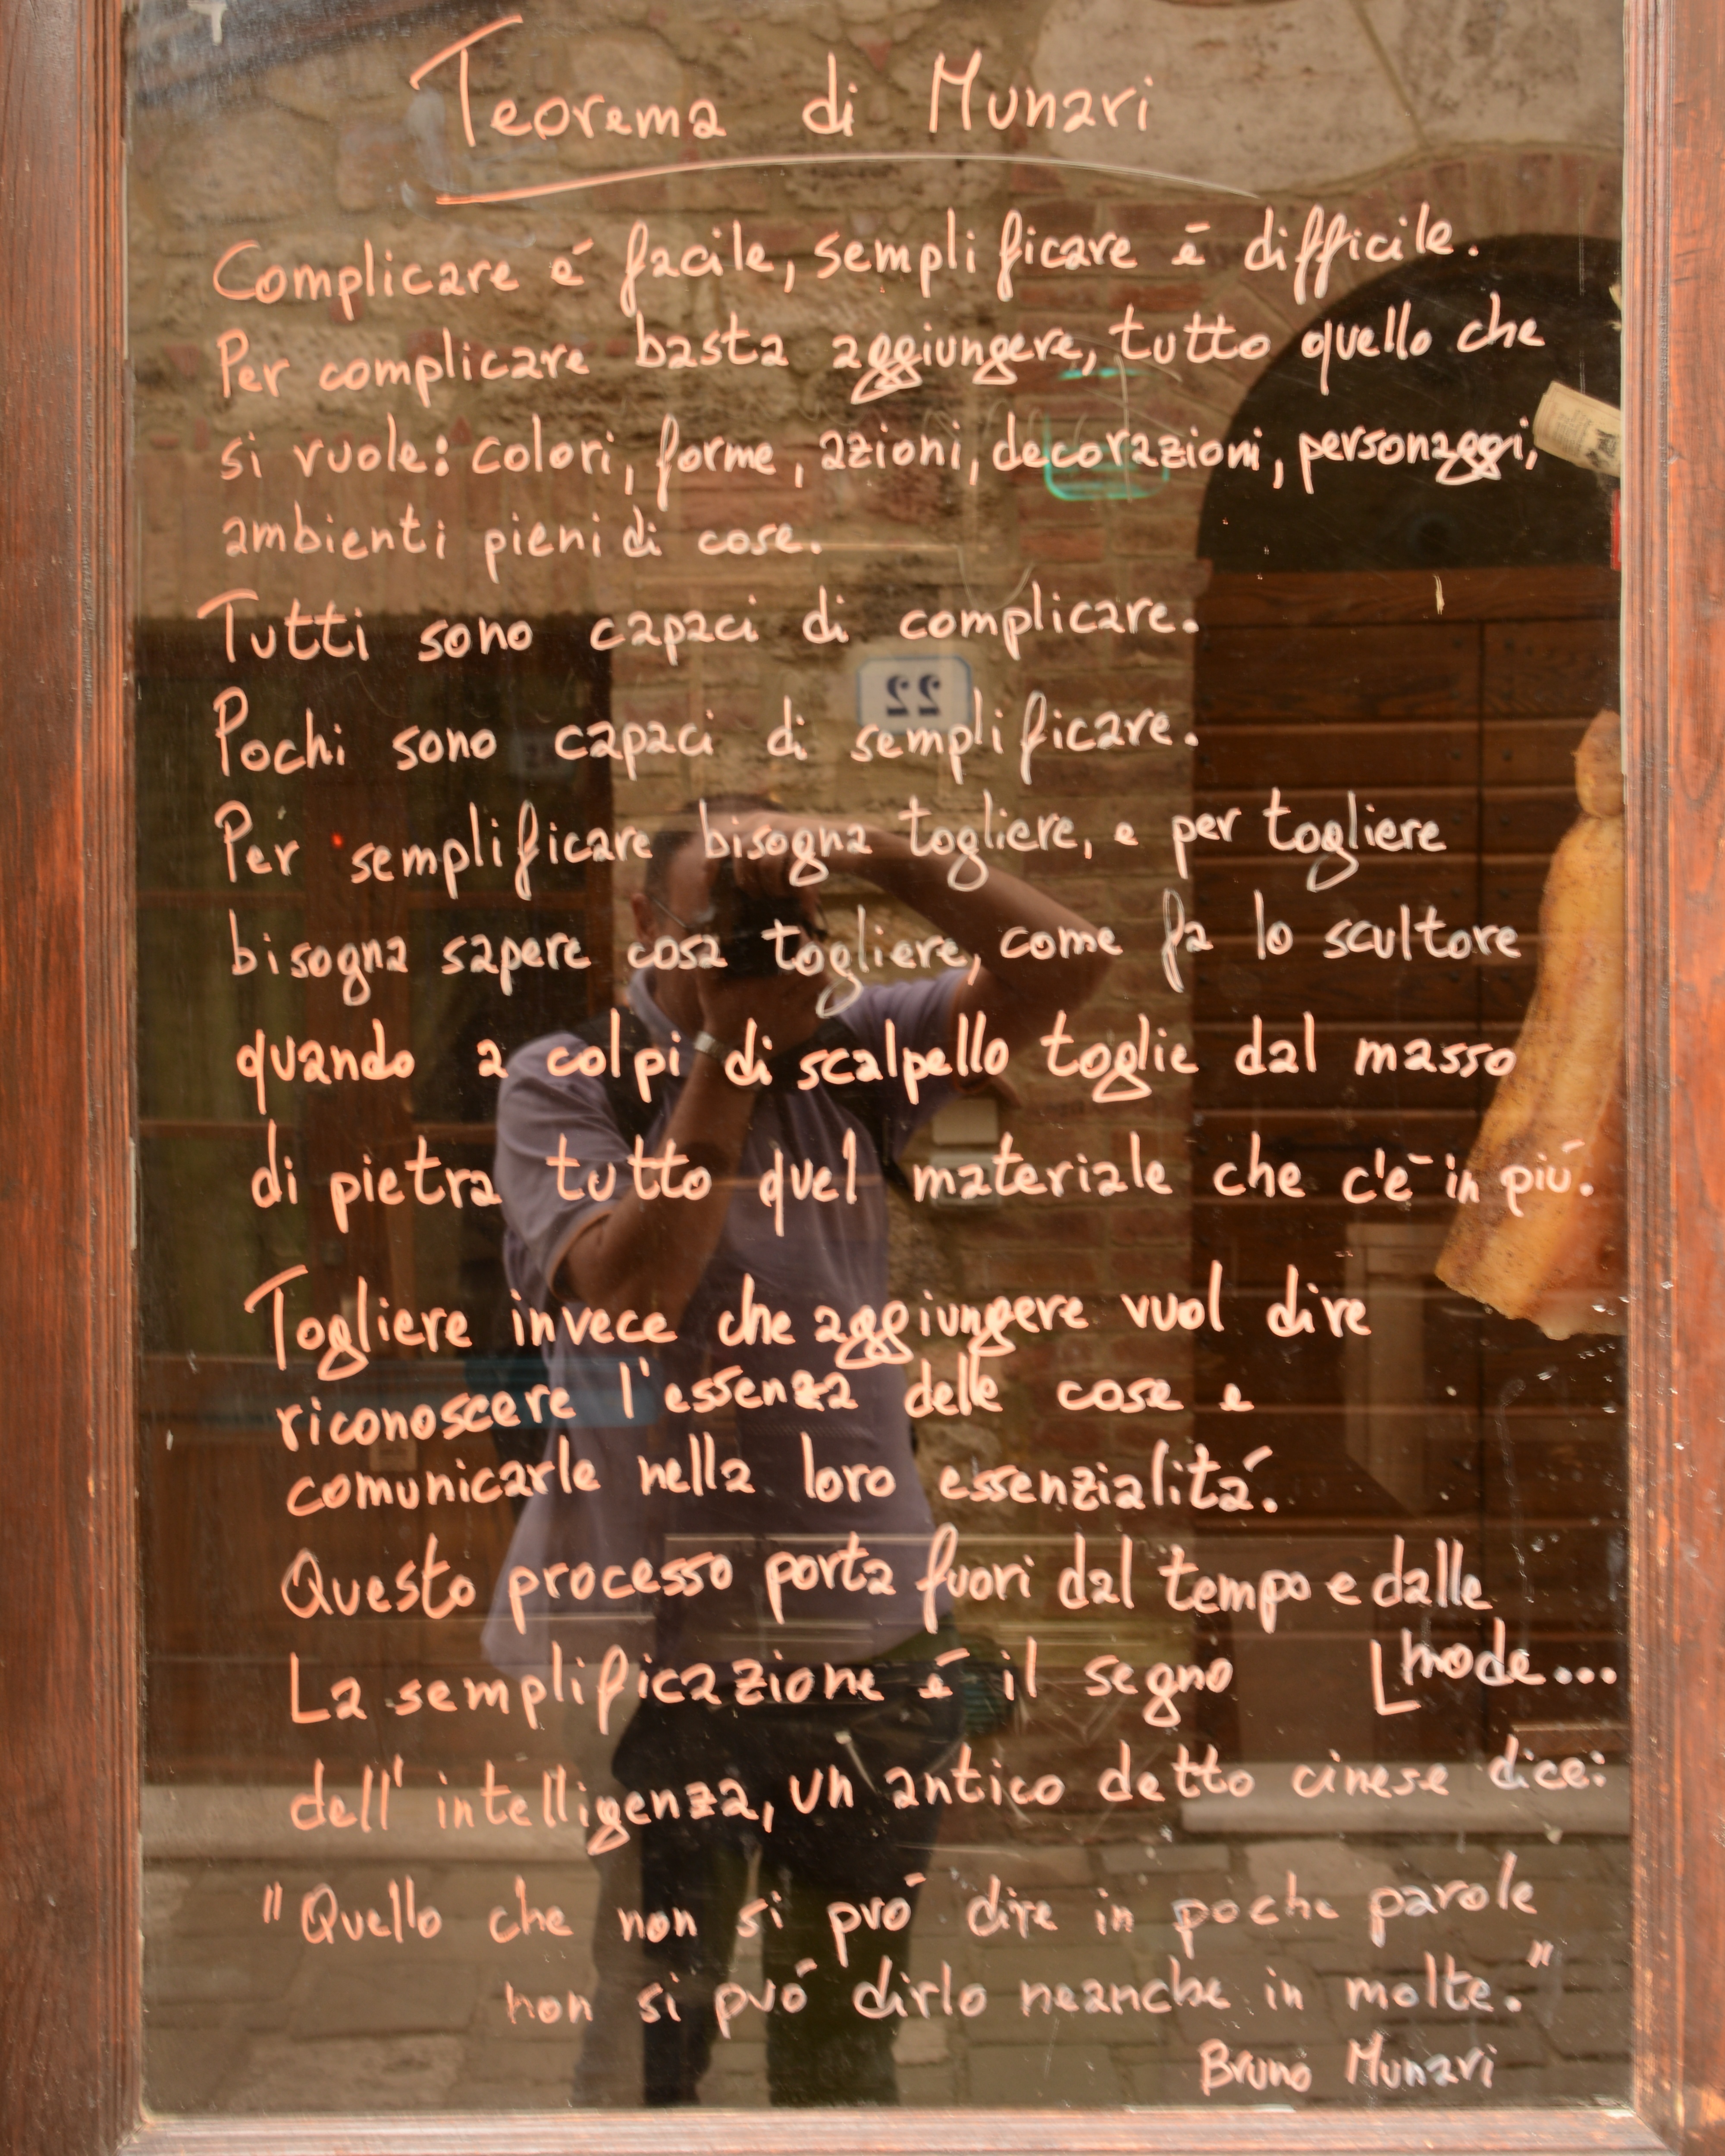 Teorema di Munari
Complicare é facile, semplificare é difficile.
Per complicare basta aggiungere, tutto quello che
si vuole: colori, forme, azioni, decorazioni, personaggi,
ambienti pieni di cose.
Tutti sono capaci di complicare.
22
Pochi sono capaci di semplificare.
Per semplificare bisogna togliere, e per togliere
bisogna sapere cosa togliere, come fa lo scultore
quando a colpi di scalpello toglie dal masso
di pietra tutto quel materiale che c'é in piú.
Togliere invece che aggiungere vuol dire
riconoscere l'essenza delle cose e
comunicarle nella loro essenzialitá.
Questo processo porta fuori dal tempo e dalle
mode...
La semplificazione é il segno
dell'intelligenza, un antico detto cinese dice:
"Quello che non si puó dire in poche parole
non si puó dirlo neanche in molte."
Bruno Munari